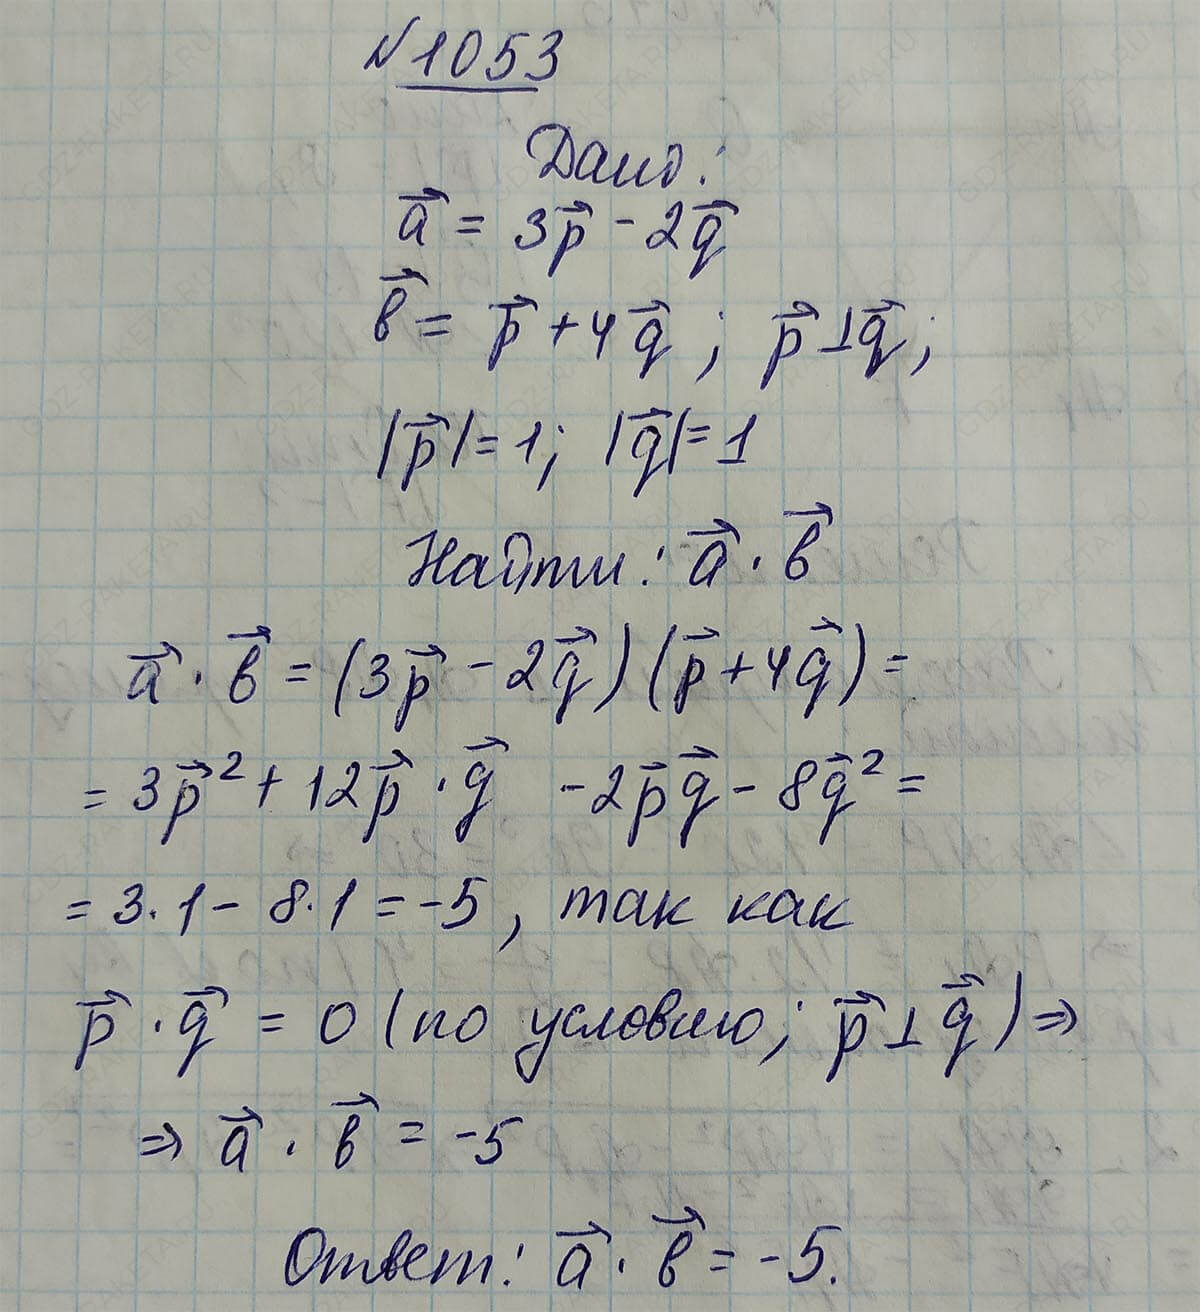 №1053
Дано:
a⃗ = 3p⃗ - 2q⃗
b⃗ = p⃗ + 4q⃗ ; p⃗ ⊥ q⃗ ;
|p⃗| = 1; |q⃗| = 1
Найти: a⃗ · b⃗
a⃗ · b⃗ = (3p⃗ - 2q⃗)(p⃗ + 4q⃗) =
= 3p⃗² + 12p⃗ · q⃗ - 2p⃗q⃗ - 8q⃗² =
= 3·1 - 8·1 = -5, так как
p⃗ · q⃗ = 0 (по условию; p⃗ ⊥ q⃗) ⇒
⇒ a⃗ · b⃗ = -5
Ответ: a⃗ · b⃗ = -5.